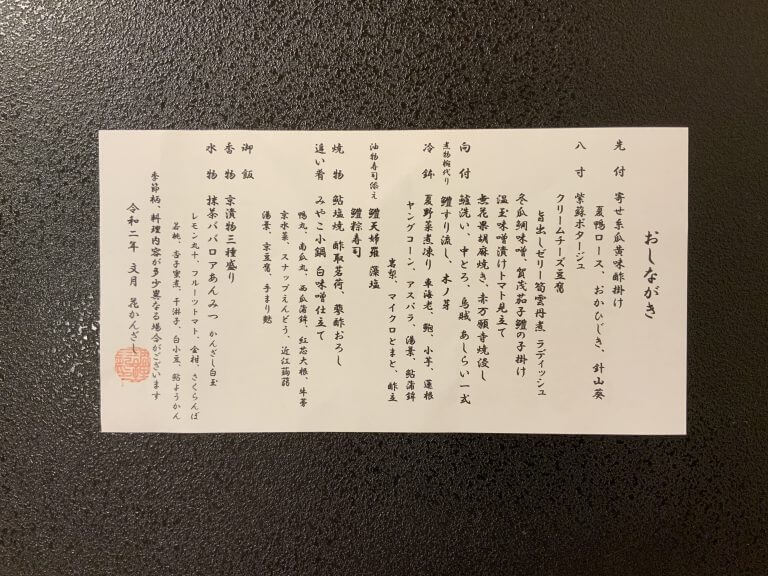 おしながき
先付 寄せ糸瓜黄味酢掛け
夏鴨ロース、おかひじき、針山葵
八寸 紫蘇ポタージュ
クリームチーズ豆腐
旨出しゼリー 筍雲丹煮 ラディッシュ
冬瓜鯛味噌、賀茂茄子鱧の子掛け
温玉味噌漬けトマト見立て
無花果胡麻焼き、赤万願寺焼浸し
向付 鱸洗い、中とろ、烏賊 あしらい一式
煮物椀代り 鱧すり流し、木ノ芽
冷鉢 夏野菜煮凍り 車海老、鮑、小芋、蓮根
ヤングコーン、アスパラ、湯葉、鮎蒲鉾
岩梨、マイクロとまと、酢立
油物寿司添え 鱧天婦羅 藻塩
鱧粽寿司
焼物 鮎塩焼 酢取茗荷、蓼酢おろし
追い肴 みやこ小鍋 白味噌仕立て
鴨丸、南瓜丸、西瓜蒲鉾、紅芯大根、牛蒡
京水菜、スナップえんどう、近江蒟蒻
湯葉、京豆腐、手まり麩
御飯
香物 京漬物三種盛り
水物 抹茶ババロアあんみつ かんざし白玉
レモン丸十、フルーツトマト、金柑、さくらんぼ
若桃、杏子蜜煮、干淋子、白小豆、鮎ようかん
季節柄、料理内容が多少異なる場合がございます
令和二年 文月 花かんざし